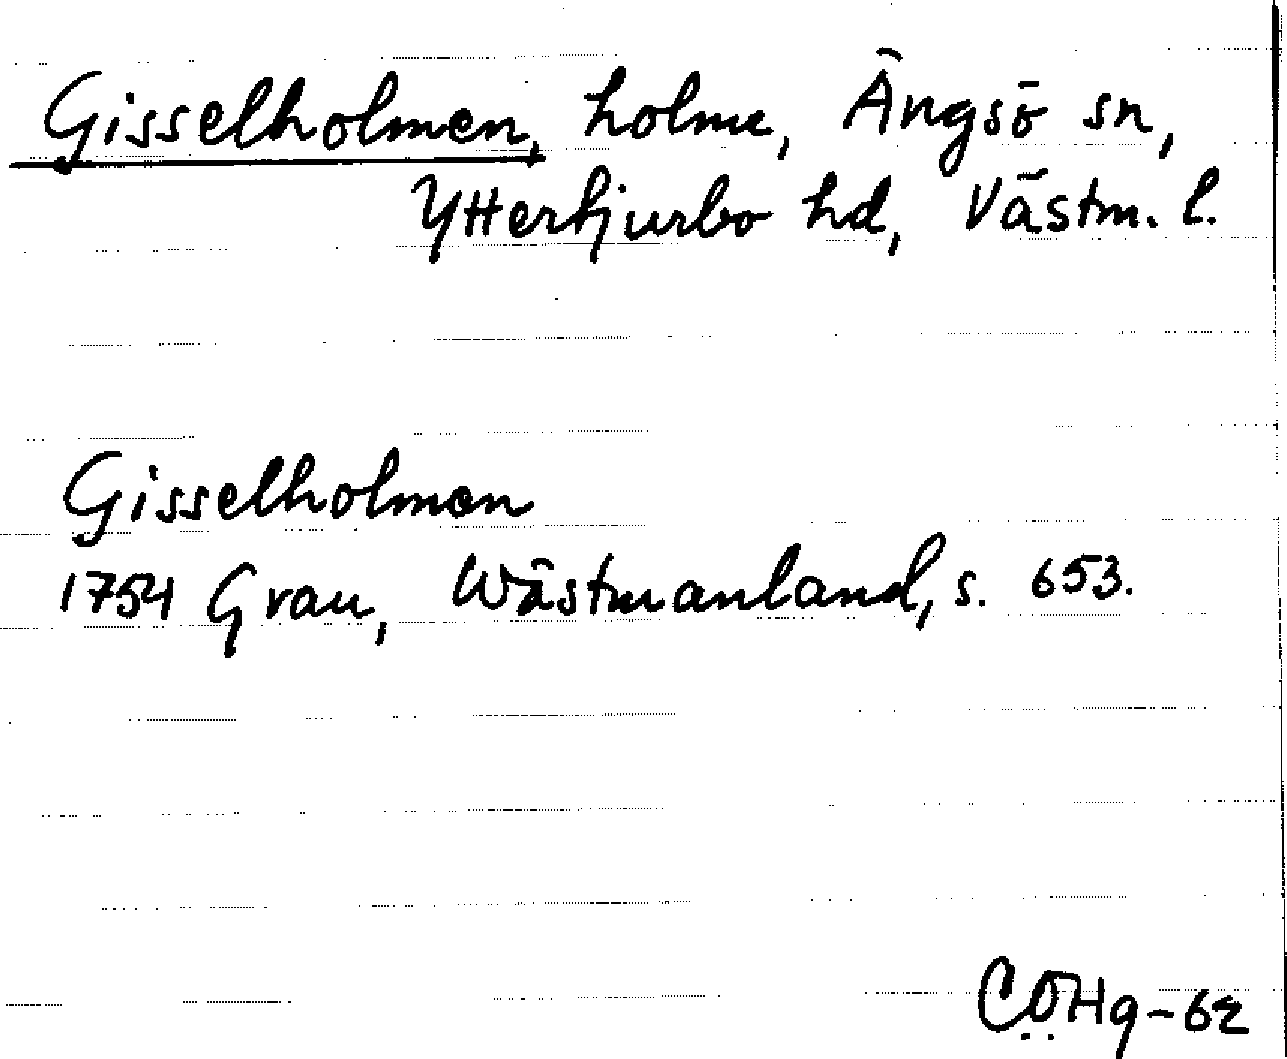 Gisselholmen, holme, Ängsö sn,
Yttertjurbo hd, Västm. l.
Gisselholmen
1754 Grau, Wästmanland, s. 653.
CÖHg-62